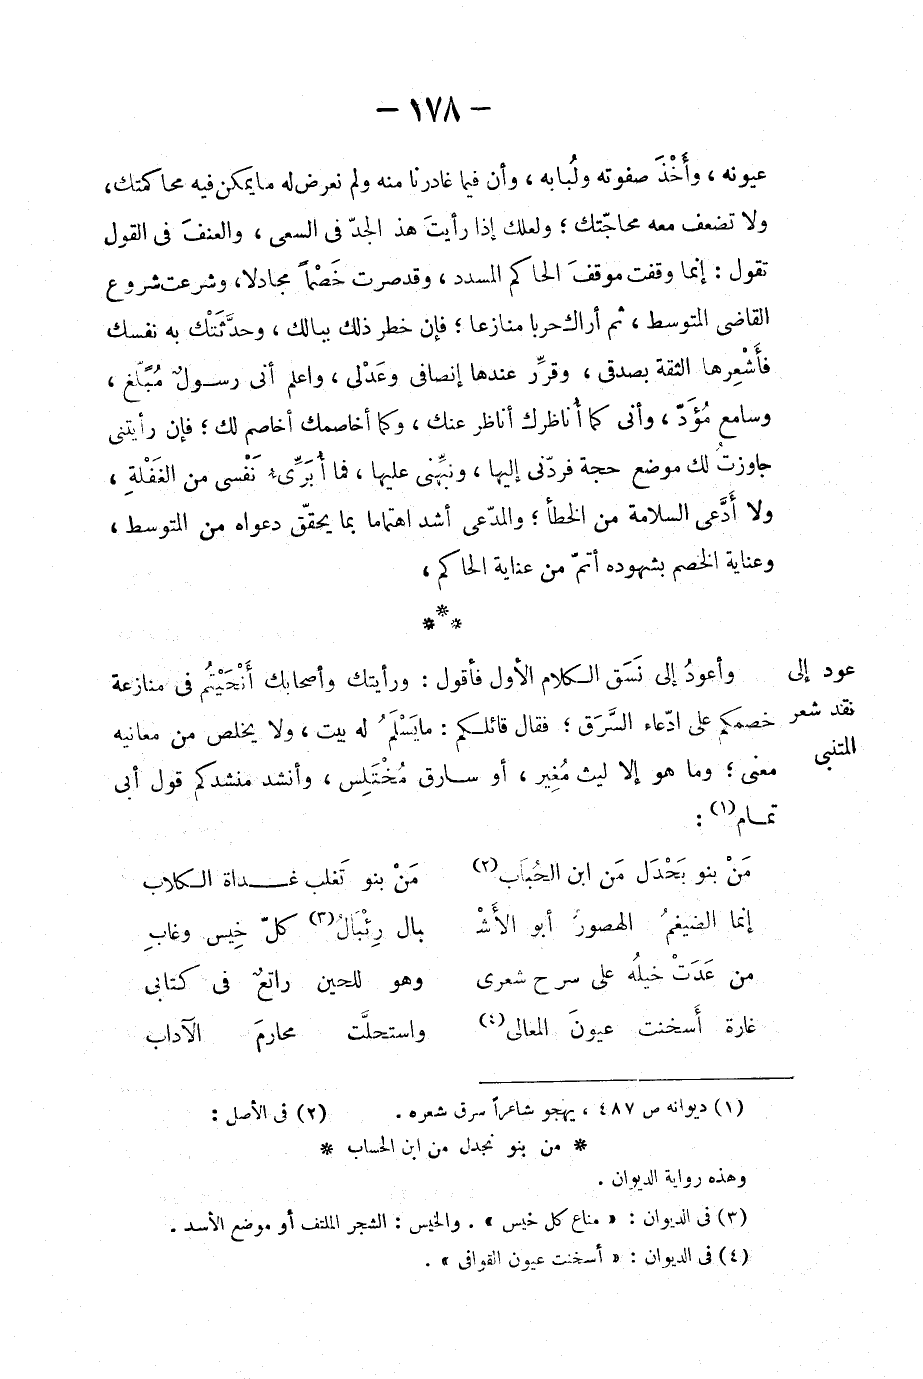 — ١٧٨ —
عيونه ، وأَخْذَ صفوته ولُبابه ، وأن فيما غادرنا منه ولم نعرض له ما يمكن فيه محاكمتك،
ولا تضعف معه محاجّتك ؛ ولعلك إذا رأيتَ هذ الجدّ فى السعى ، والعنفَ فى القول
تقول : إنما وقفت موقفَ الحاكم المسدد ، وقد صرت خَصْماً مجادلا، وشرعت شروع
القاضى المتوسط ، ثم أراك حربا منازعا ؛ فإن خطر ذلك ببالك ، وحدَّثَتْك به نفسك
فأَشْعِرها الثقة بصدقى ، وقرِّر عندها إنصافى وعَدْلى ، واعلم أنى رسولٌ مُبَلّغ ،
وسامع مُؤَدّ ، وأنى كما أُناظرك أناظر عنك ، وكما أخاصمك أخاصم لك ؛ فإن رأيتنى
جاوزتُ لك موضع حجة فردّنى إليها ، ونبِّهنى عليها ، فما أُبَرِّىء نَفْسى من الغَفْلةِ ،
ولا أَدَّعى السلامة من الخطأ ؛ والمدّعى أشد اهتماما بما يحقّق دعواه من المتوسط ،
وعناية الخصم بشهوده أتمّ من عناية الحاكم ،
***
عود إلى
نقد شعر
المتنبى
وأعودُ إلى نَسَق الكلام الأول فأقول : ورأيتك وأصحابك أَنْحَيْتُم فى منازعة
خصمكم على ادّعاء السَّرَق ؛ فقال قائلكم : ما يَسْلَمُ له بيت ، ولا يخلص من معانيه
معنى ؛ وما هو إلا ليث مُغِير ، أو سارق مُخْتَلِس ، وأنشد منشدكم قول أبى
تمام(١) :
مَنْ بنو بَحْدَل مَن ابن الحُبَاب(٢) مَنْ بنو تَغلب غداة الكلاب
إنما الضيغمُ الهصورُ أبو الأَشْـ بال رِئْبَالُ(٣) كلّ خِيس وغابِ
من عَدَتْ خيلُه على سرح شعرى وهو للحين راتعٌ فى كتابى
غارة أَسخنت عيونَ المعالى(٤) واستحلَّت محارمَ الآداب
(١) ديوانه ص ٤٨٧ ، يهجو شاعراً سرق شعره . (٢) فى الأصل :
* من بنو نجدل من ابن الحساب *
وهذه رواية الديوان .
(٣) فى الديوان : « مناع كل خيس » . والخيس : الشجر الملتف أو موضع الأسد .
(٤) فى الديوان : « أسخنت عيون القوافى » .